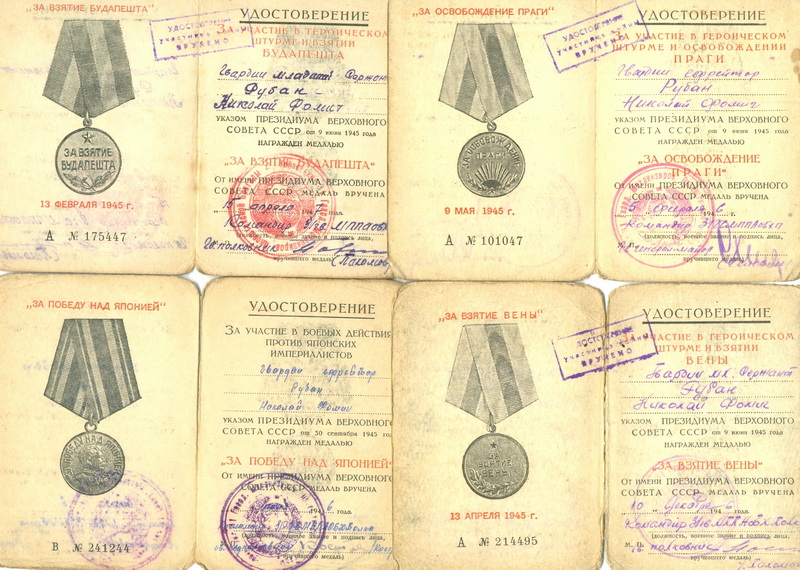 „ЗА ВЗЯТИЕ БУДАПЕШТА"
ЗА ВЗЯТИЕ
БУДАПЕШТА
13 ФЕВРАЛЯ 1945 г.
А № 175447
УДОСТОВЕРЕНИЕ
ВРУЧЕНО
УДОСТОВЕРЕНИЕ
ЗА УЧАСТИЕ В ГЕРОИЧЕСКОМ
ШТУРМЕ И ВЗЯТИИ
БУДАПЕШТА
Гвардии младший Сержан
Рубан
Николай Фомич
УКАЗОМ ПРЕЗИДИУМА ВЕРХОВНОГО
СОВЕТА СССР от 9 июня 1945 года
НАГРАЖДЕН МЕДАЛЬЮ
„ЗА ВЗЯТИЕ БУДАПЕШТА"
ОТ ИМЕНИ ПРЕЗИДИУМА ВЕРХОВНОГО
СОВЕТА СССР МЕДАЛЬ ВРУЧЕНА
5 апреля 194 года.
Командир
(должность, военное звание и подпись лица,
полковник
вручившего медаль)
„ЗА ОСВОБОЖДЕНИЕ ПРАГИ"
ЗА ОСВОБОЖДЕНИЕ
ПРАГИ
9 МАЯ 1945 г.
А № 101047
УДОСТОВЕРЕНИЕ
ВРУЧЕНО
УДОСТОВЕРЕНИЕ
ЗА УЧАСТИЕ В ГЕРОИЧЕСКОМ
ШТУРМЕ И ОСВОБОЖДЕНИИ
ПРАГИ
Гвардии ефрейтор
Рубан
Николай Фомич
УКАЗОМ ПРЕЗИДИУМА ВЕРХОВНОГО
СОВЕТА СССР от 9 июня 1945 года
НАГРАЖДЕН МЕДАЛЬЮ
„ЗА ОСВОБОЖДЕНИЕ
ПРАГИ"
ОТ ИМЕНИ ПРЕЗИДИУМА ВЕРХОВНОГО
СОВЕТА СССР МЕДАЛЬ ВРУЧЕНА
5 194 г.
Командир
(должность, военное звание и подпись лица,
вручившего медаль)
„ЗА ПОБЕДУ НАД ЯПОНИЕЙ"
ЗА ПОБЕДУ НАД ЯПОНИЕЙ
В № 241244
УДОСТОВЕРЕНИЕ
ЗА УЧАСТИЕ В БОЕВЫХ ДЕЙСТВИЯ
ПРОТИВ ЯПОНСКИХ
ИМПЕРИАЛИСТОВ
Гвардии ефрейтор
Рубан
Николай Фомич
УКАЗОМ ПРЕЗИДИУМА ВЕРХОВНОГО
СОВЕТА СССР от 30 сентября 1945 год
НАГРАЖДЕН МЕДАЛЬЮ
„ЗА ПОБЕДУ НАД ЯПОНИЕЙ"
ОТ ИМЕНИ ПРЕЗИДИУМА ВЕРХОВНОГО
СОВЕТА СССР МЕДАЛЬ ВРУЧЕНА
6 года.
(должность, военное звание и подпись лица,
вручившего медаль)
„ЗА ВЗЯТИЕ ВЕНЫ"
ЗА
ВЗЯТИЕ
ВЕНЫ
13 АПРЕЛЯ 1945 г.
А № 214495
ВРУЧЕНО
УДОСТОВЕРЕНИЕ
УЧАСТИЕ В ГЕРОИЧЕСКОМ
ШТУРМЕ И ВЗЯТИИ
ВЕНЫ
Гвардии мл. Сержант
Рубан
Николай Фомич
УКАЗОМ ПРЕЗИДИУМА ВЕРХОВНОГО
СОВЕТА СССР от 9 июня 1945 года
НАГРАЖДЕН МЕДАЛЬЮ
„ЗА ВЗЯТИЕ ВЕНЫ"
ОТ ИМЕНИ ПРЕЗИДИУМА ВЕРХОВНОГО
СОВЕТА СССР МЕДАЛЬ ВРУЧЕНА
10
Командир
(должность, военное звание и подпись лица,
М. П. полковник
вручившего медаль)